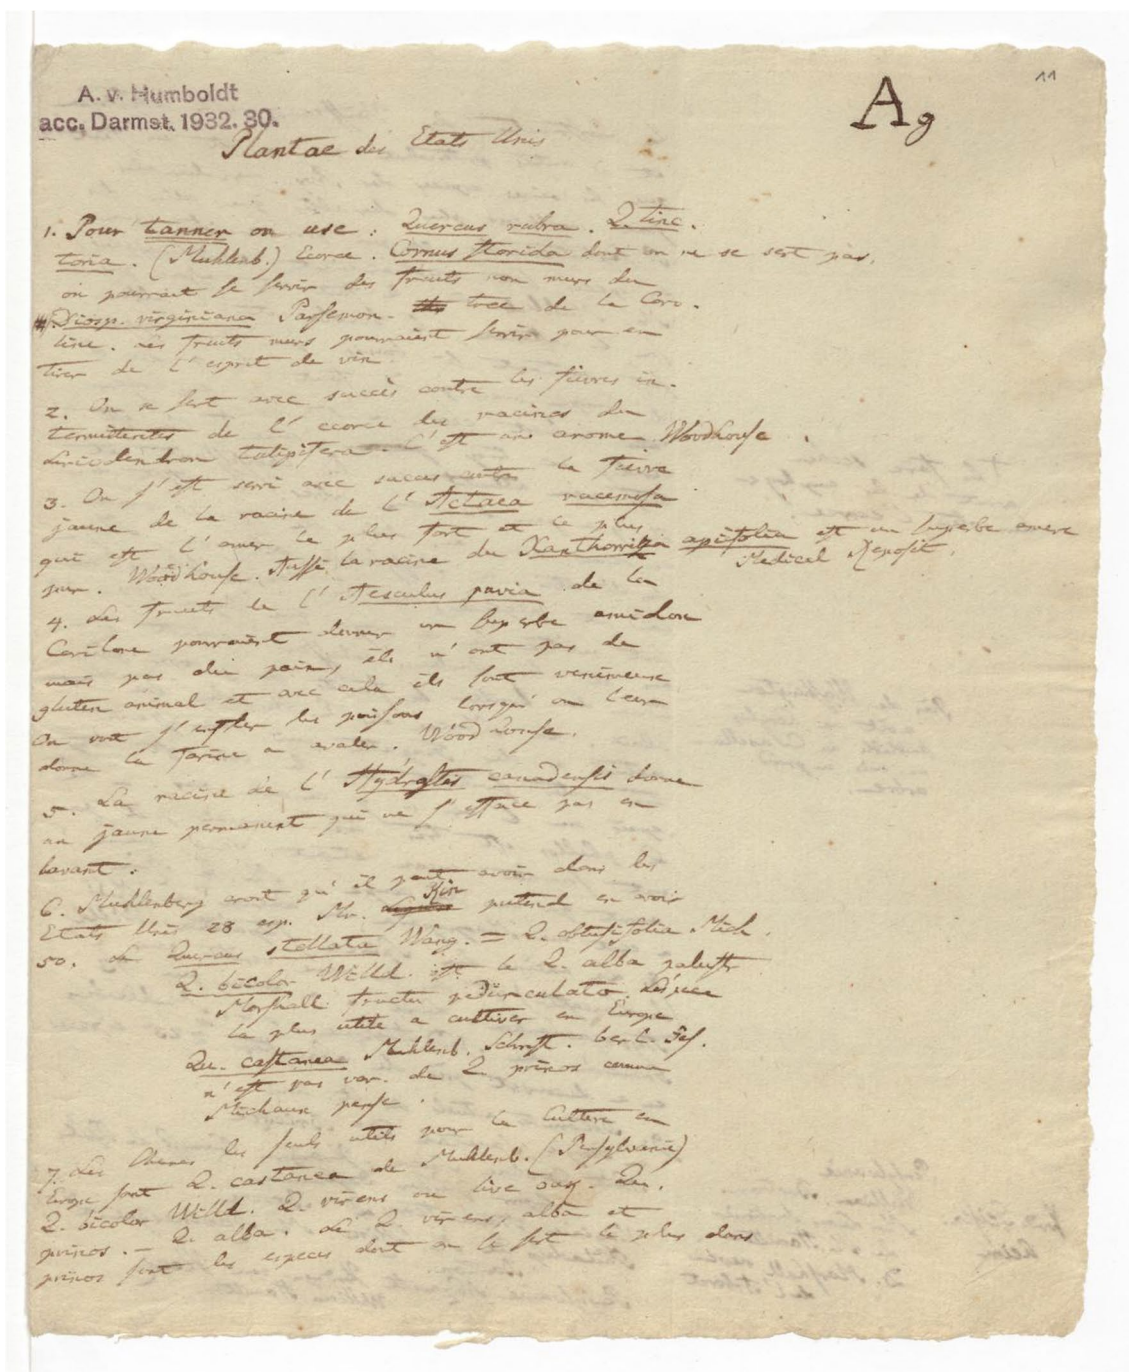 11
A. v. Humboldt
acc. Darmst. 1932. 30.
Ag
Plantae des Etats Unis
1. Pour tanner on use: Quercus rubra. Q. tinc-
toria. (Muhlenb.) Ecorce. Cornus florida dont on ne se sert pas.
on pourrait se servir des fruits non murs du
Diosp. virginiana Persemon- tree de la Caro-
line. les fruits murs pourraient servir pour en
tirer de l'esprit de vin.
2. On se sert avec succès contre les fievres in-
termittentes de l'ecorce des racines du
Liriodendron tulipifera. C'est un arome. Woodhouse.
3. On s'est servi avec succes contre la fievre
jaune de la racine de l'Actaea racemosa
qui est l'amer le plus fort et le plus
pur. Woodhouse. Aussi la racine du Xanthorriza apiifolia est un superbe amere
Medical Reposit.
4. Les fruits de l'Aesculus pavia de la
Caroline pourraient donner un superbe amidon
mais pas du pain, ils n'ont pas de
gluten animal et avec cela ils sont venimeux
On voit s'enfler les poissons lorsqu'on leur
donne la farine a avaler. Woodhouse.
5. La racine de l'Hydrastis canadensis donne
un jaune permanent qui ne s'efface pas en
lavant.
6. Muhlenberg croit qu'il peut avoir dans les
Etats Unis 28 esp. Mr. Kin pretend en avoir
50. Le Quercus stellata Wang. = Q. obtusifolia Mich.
Q. bicolor Willd. est le Q. alba palustr
Marshall fructu pedunculato. L'espece
la plus utile a cultiver en Europe
Qu. castanea Muhlenb. Schrift. berl. Ges.
n'est pas var. de Q. prinos comme
Michaux pense.
7. Les Chenes les seuls utils pour la Culture en
Europe sont Q. castanea de Muhlenb. (Pensylvanie)
Q. bicolor Willd. Q. virens ou live oak. Qu.
prinos. - Q. alba. Le Q. virens, alba et
prinos sont les especes dont on se sert le plus dans